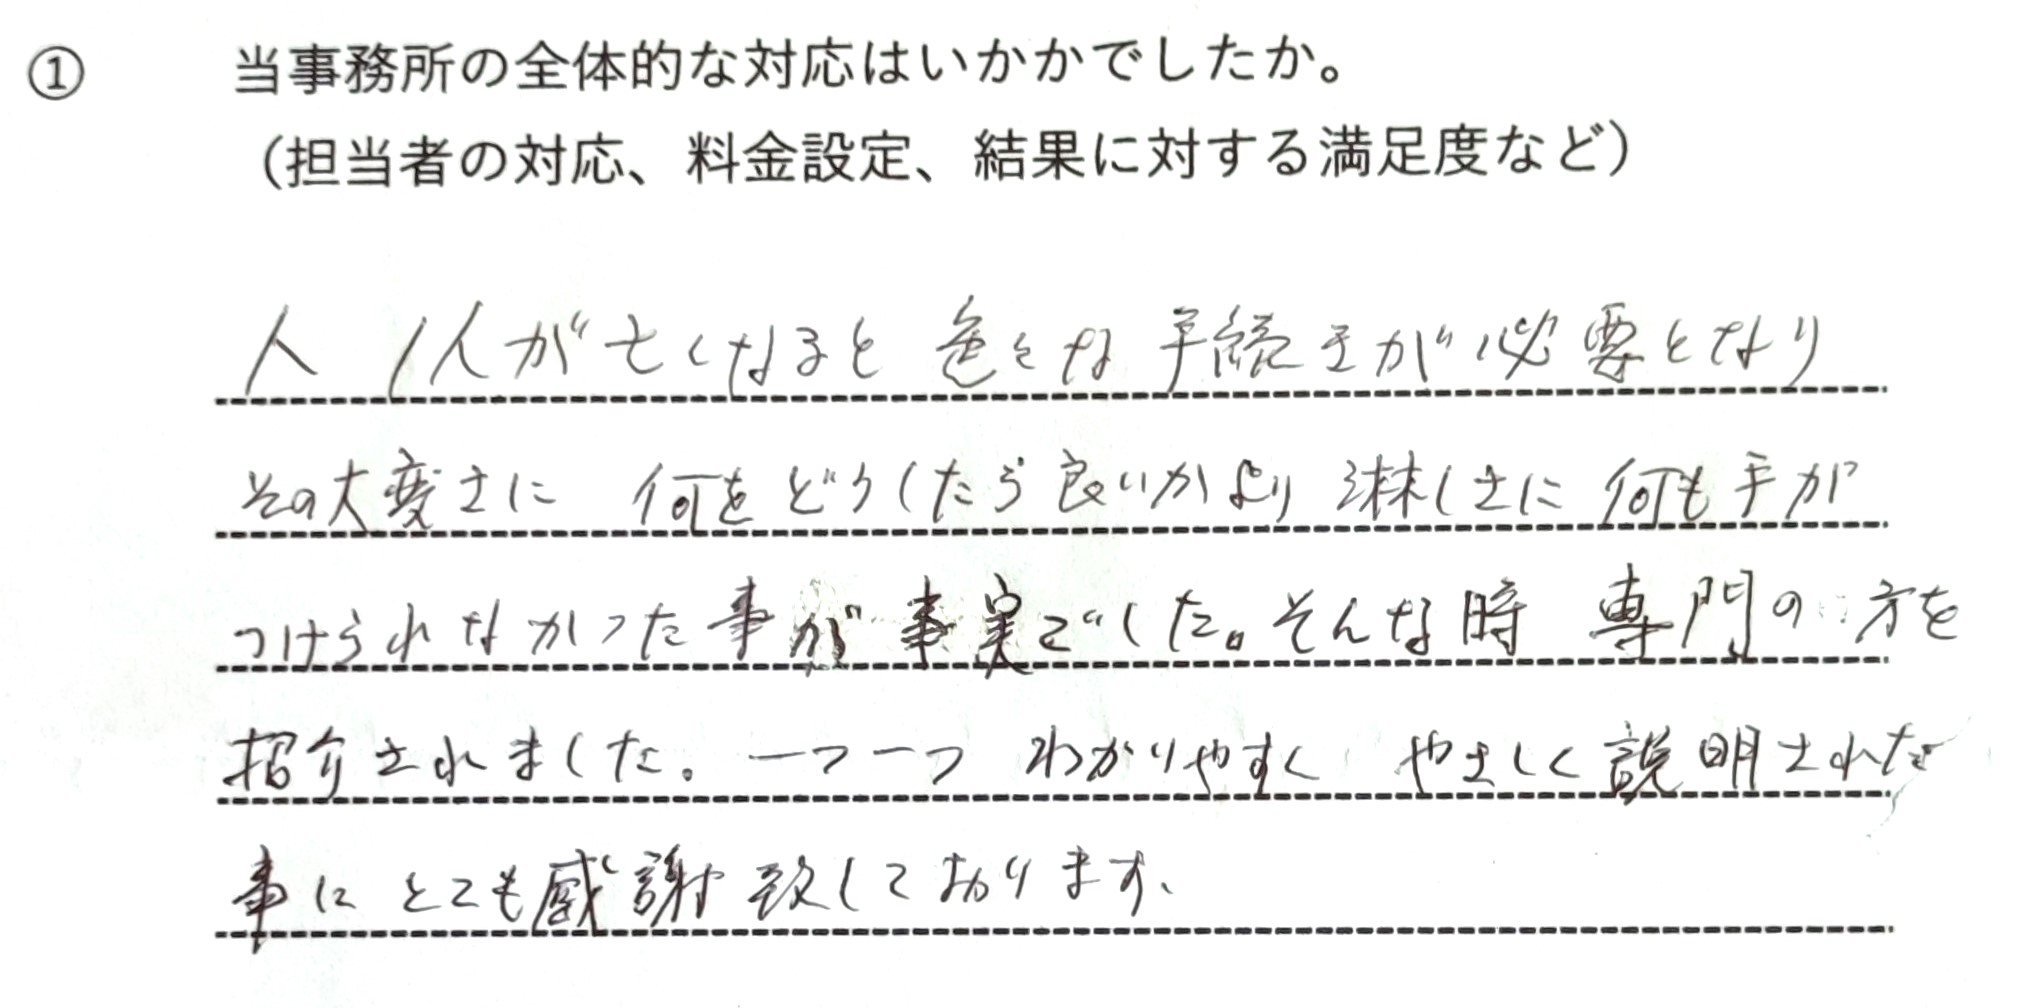 ① 当事務所の全体的な対応はいかかでしたか。
（担当者の対応、料金設定、結果に対する満足度など）
人 1人が亡くなると 色々な 手続きが 必要となり
その大変さに 何を どうしたら 良いかより 淋しさに 何も手が
つけられなかった事が 事実でした。そんな時 専門の 方を
招介されました。一つ一つ わかりやすく やさしく説明された
事に とても感謝 致しております、